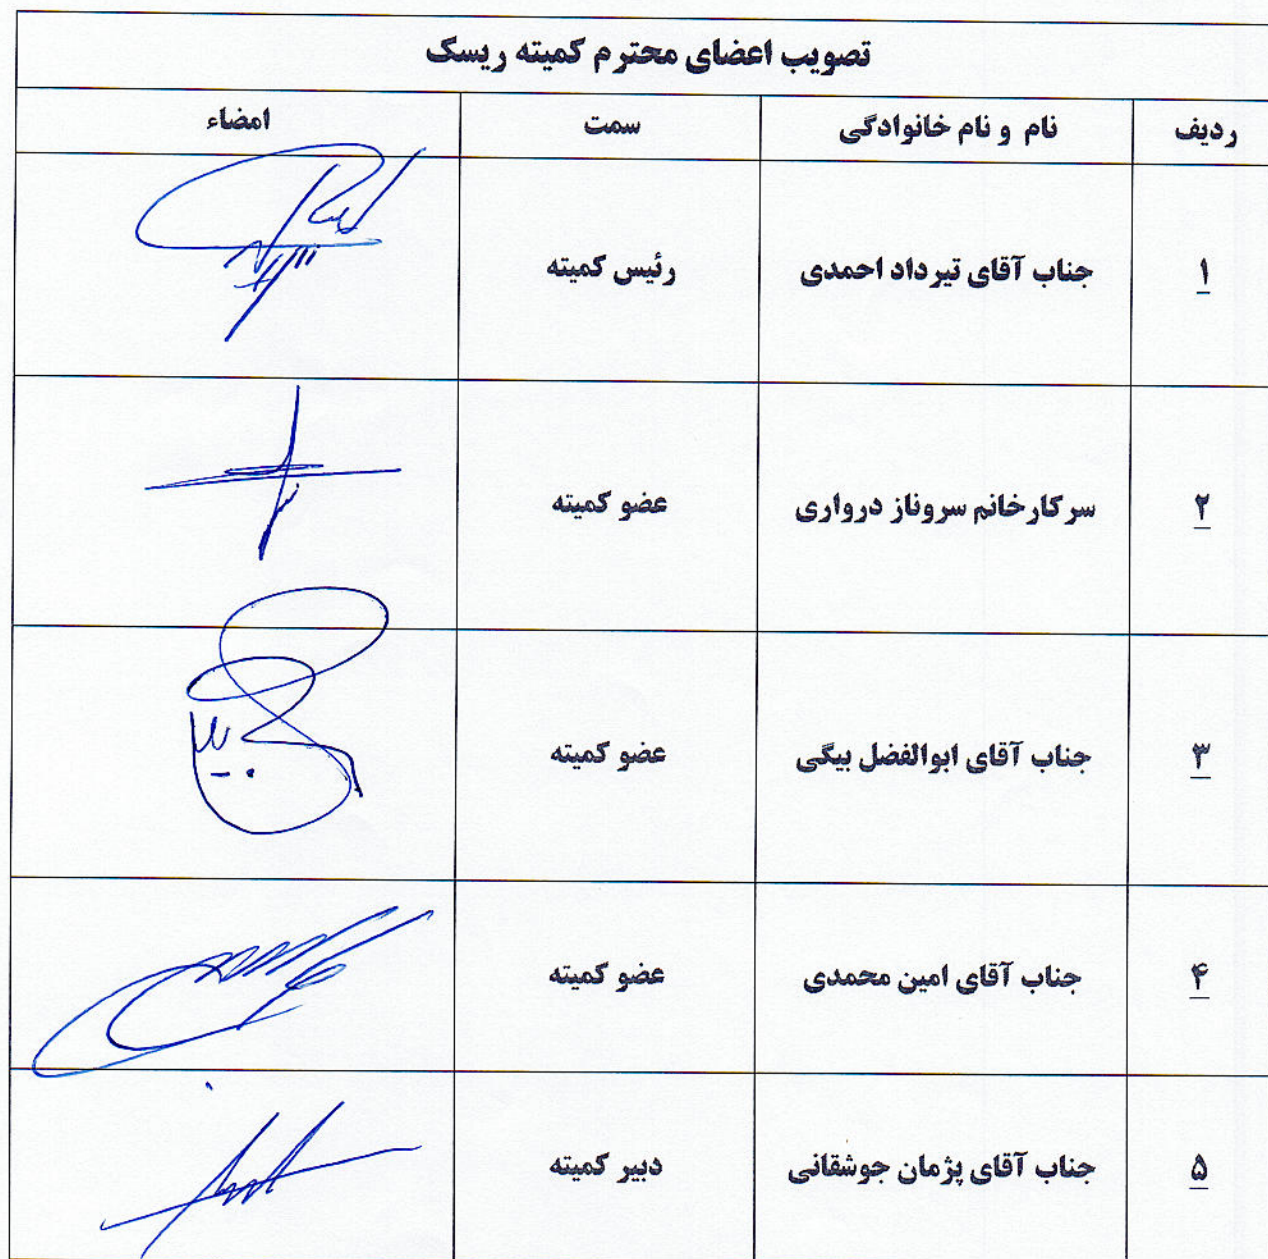 تصویب اعضای محترم کمیته ریسک
ردیف نام و نام خانوادگی سمت امضاء
۱ جناب آقای تیرداد احمدی رئیس کمیته
۲ سرکارخانم سروناز درواری عضو کمیته
۳ جناب آقای ابوالفضل بیگی عضو کمیته
۴ جناب آقای امین محمدی عضو کمیته
۵ جناب آقای پژمان جوشقانی دبیر کمیته